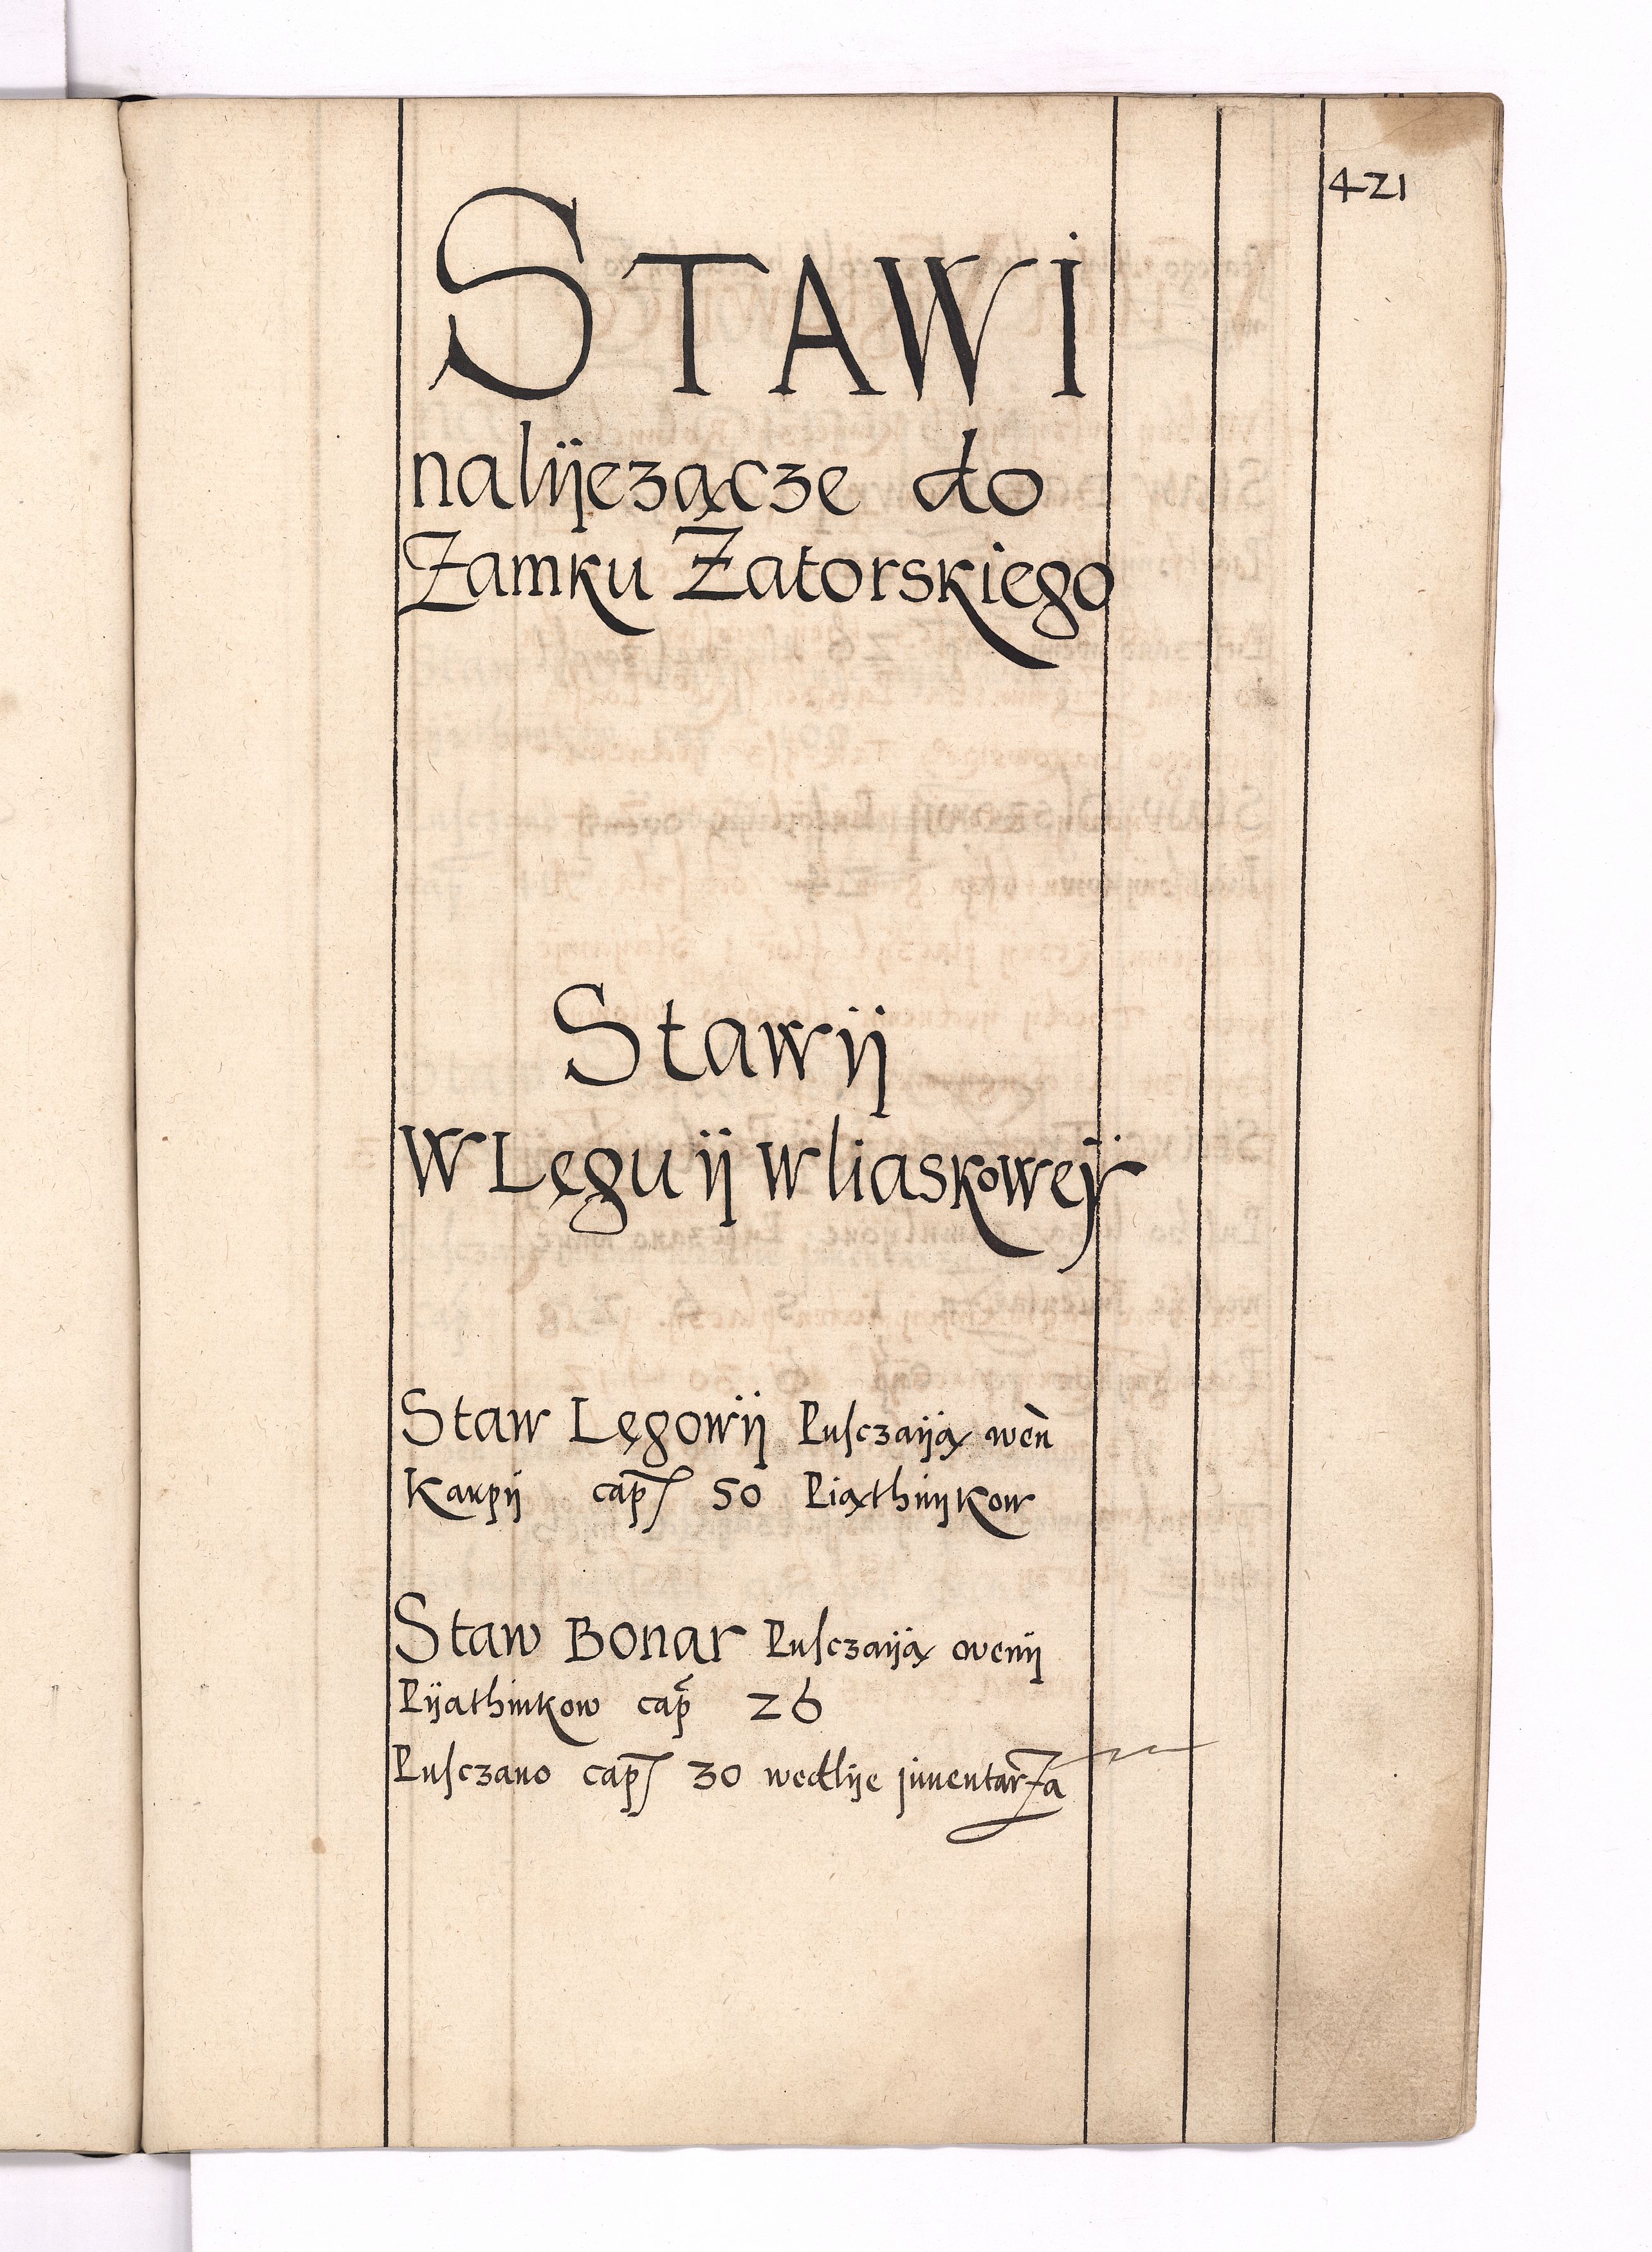 421
STAWI
nalijezącze do
Zamku Zatorskiego
Stawij
W Lęgu ij w liaskowej
Staw Lęgowij Pusczaiją wen
Karpij cap 50 Piąthnijkow
Staw Bonar Pusczaiją wenij
Pijathnikow cap 26
Pusczano cap 30 wedlije inuentarza